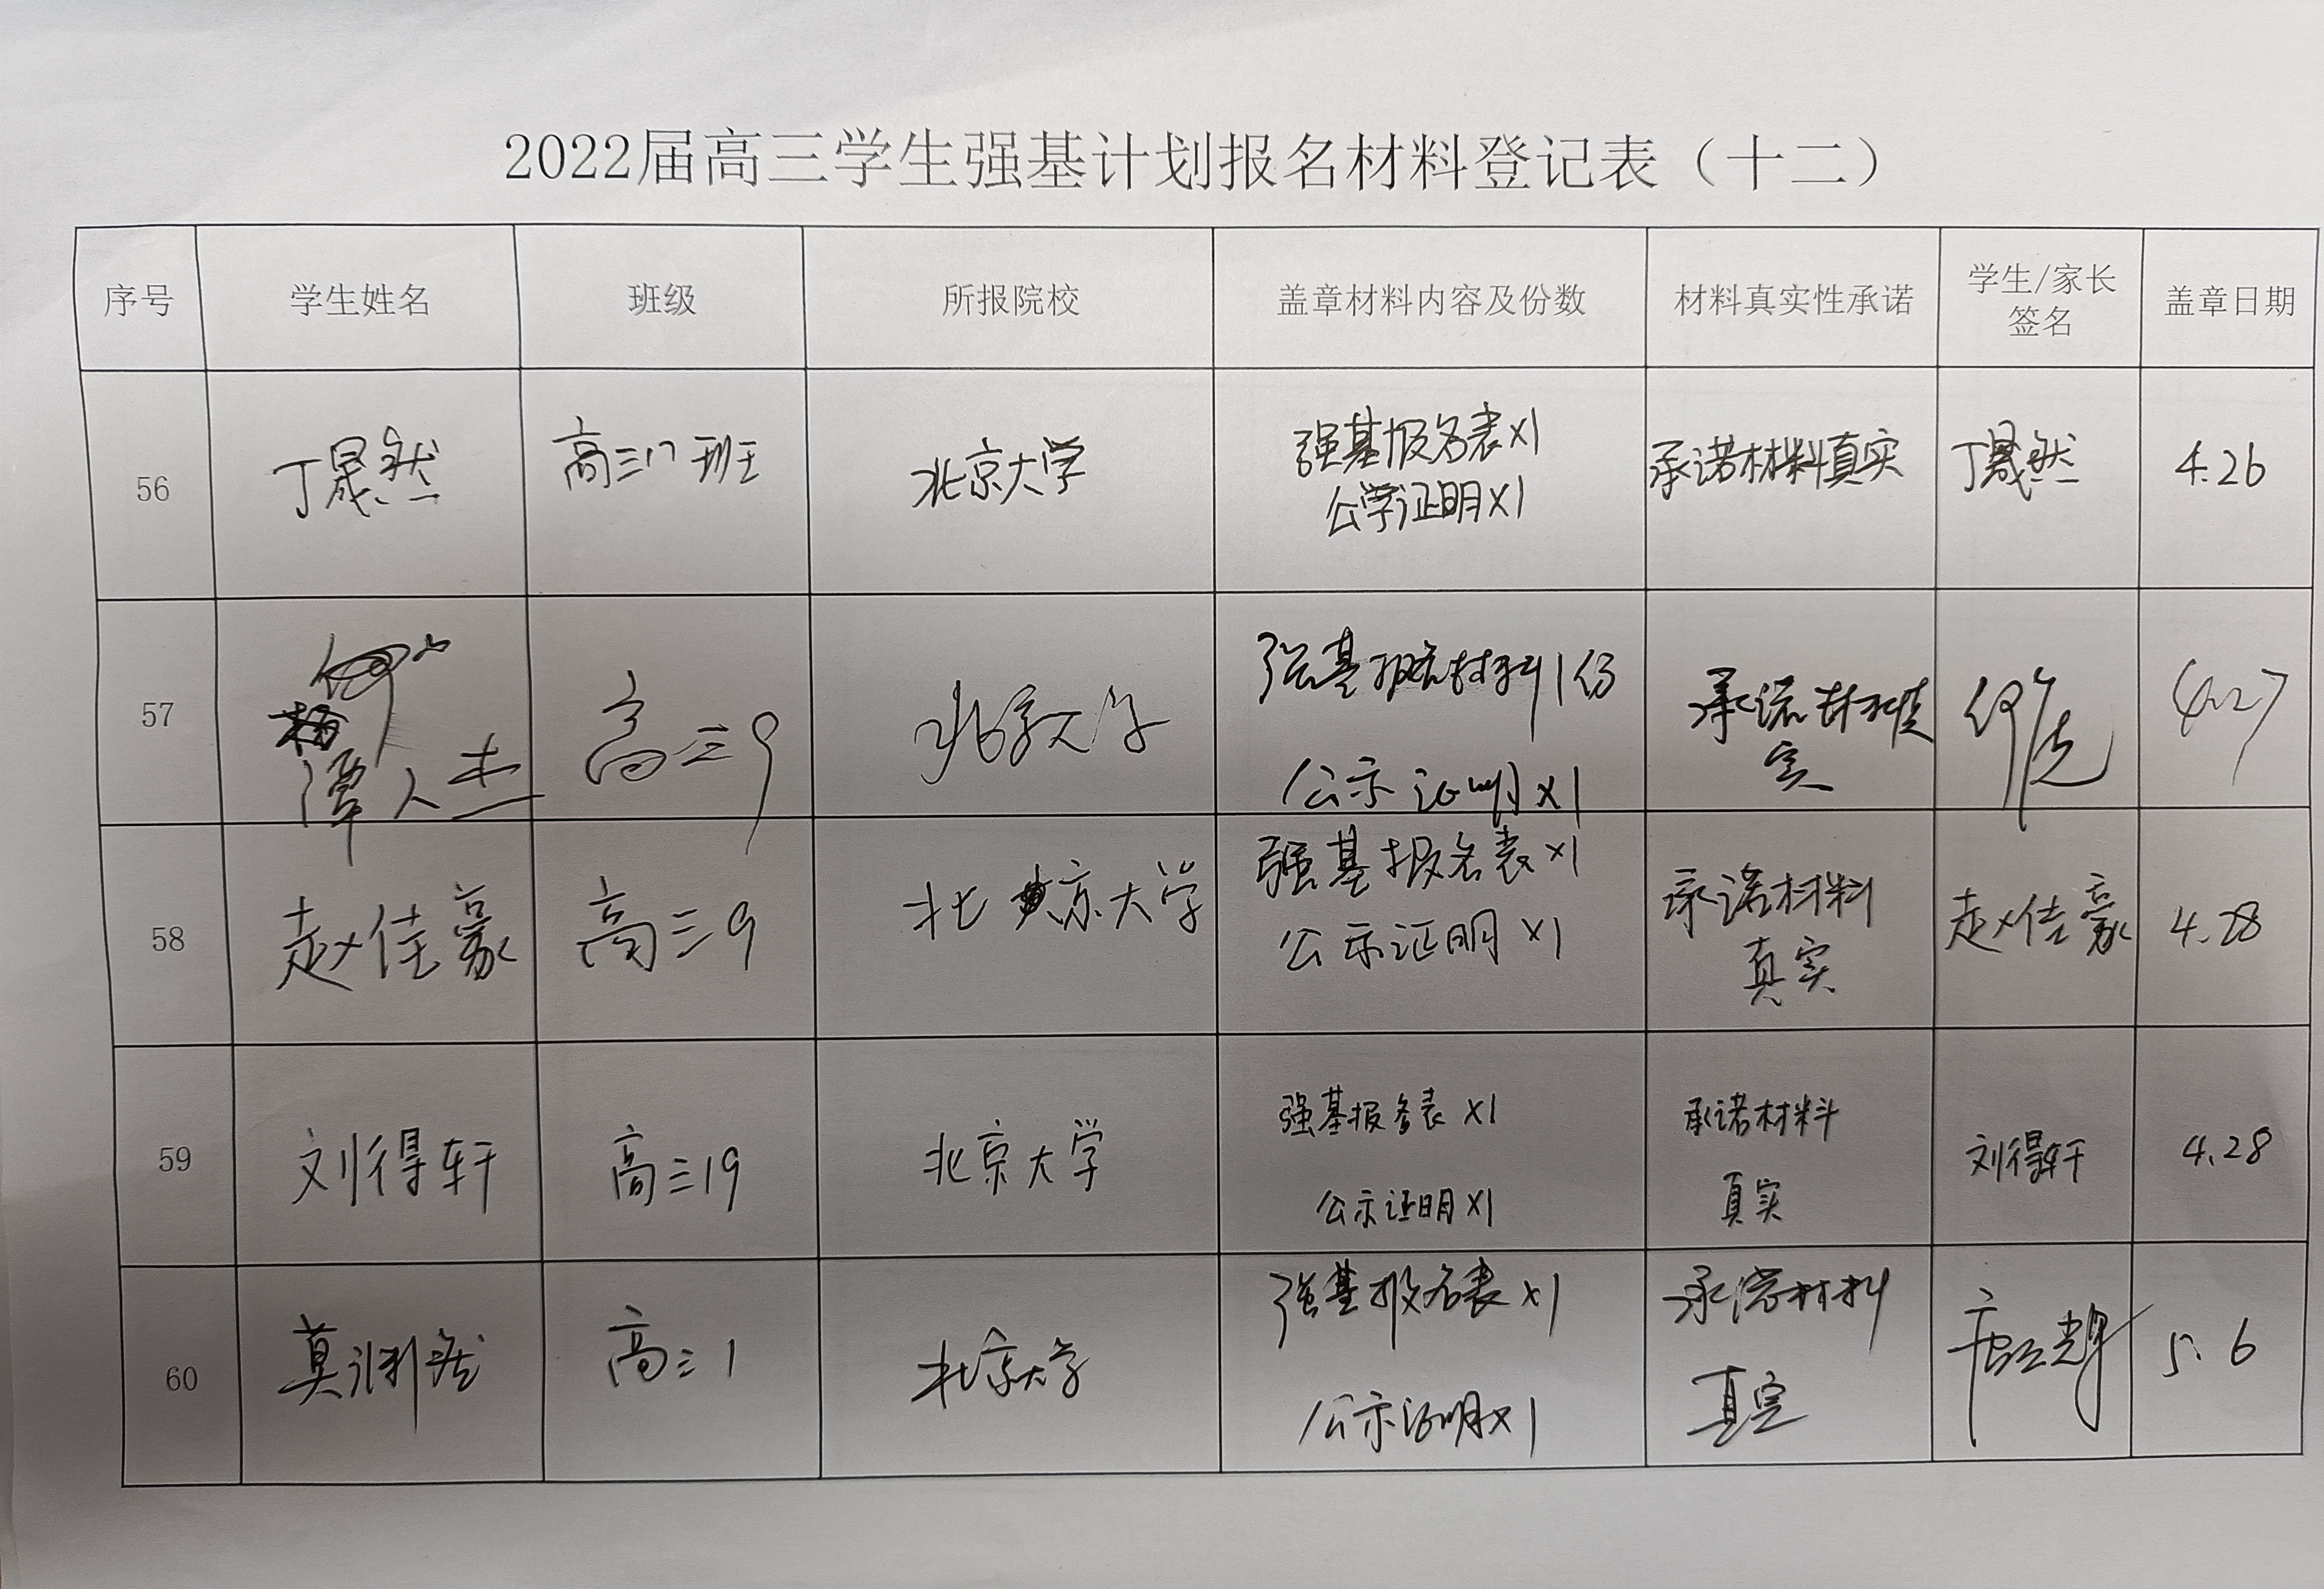 2022届高三学生强基计划报名材料登记表（十二）
序号 学生姓名 班级 所报院校 盖章材料内容及份数 材料真实性承诺 学生/家长 盖章日期
签名
56 丁晟然 高三17班 北京大学 强基报名表×1 承诺材料真实 丁晟然 4.26
公学证明×1
57 谭人杰 高三9 北京大学 强基报名材料1份 承诺材料真 4.27
实
公示证明×1
58 赵佳豪 高三9 北京大学 强基报名表×1 承诺材料 赵佳豪 4.28
公示证明×1 真实
59 刘得轩 高三19 北京大学 强基报名表×1 承诺材料 刘得轩 4.28
公示证明×1 真实
60 莫渊然 高三1 北京大学 强基报名表×1 承诺材料 5.6
公示证明×1 真实